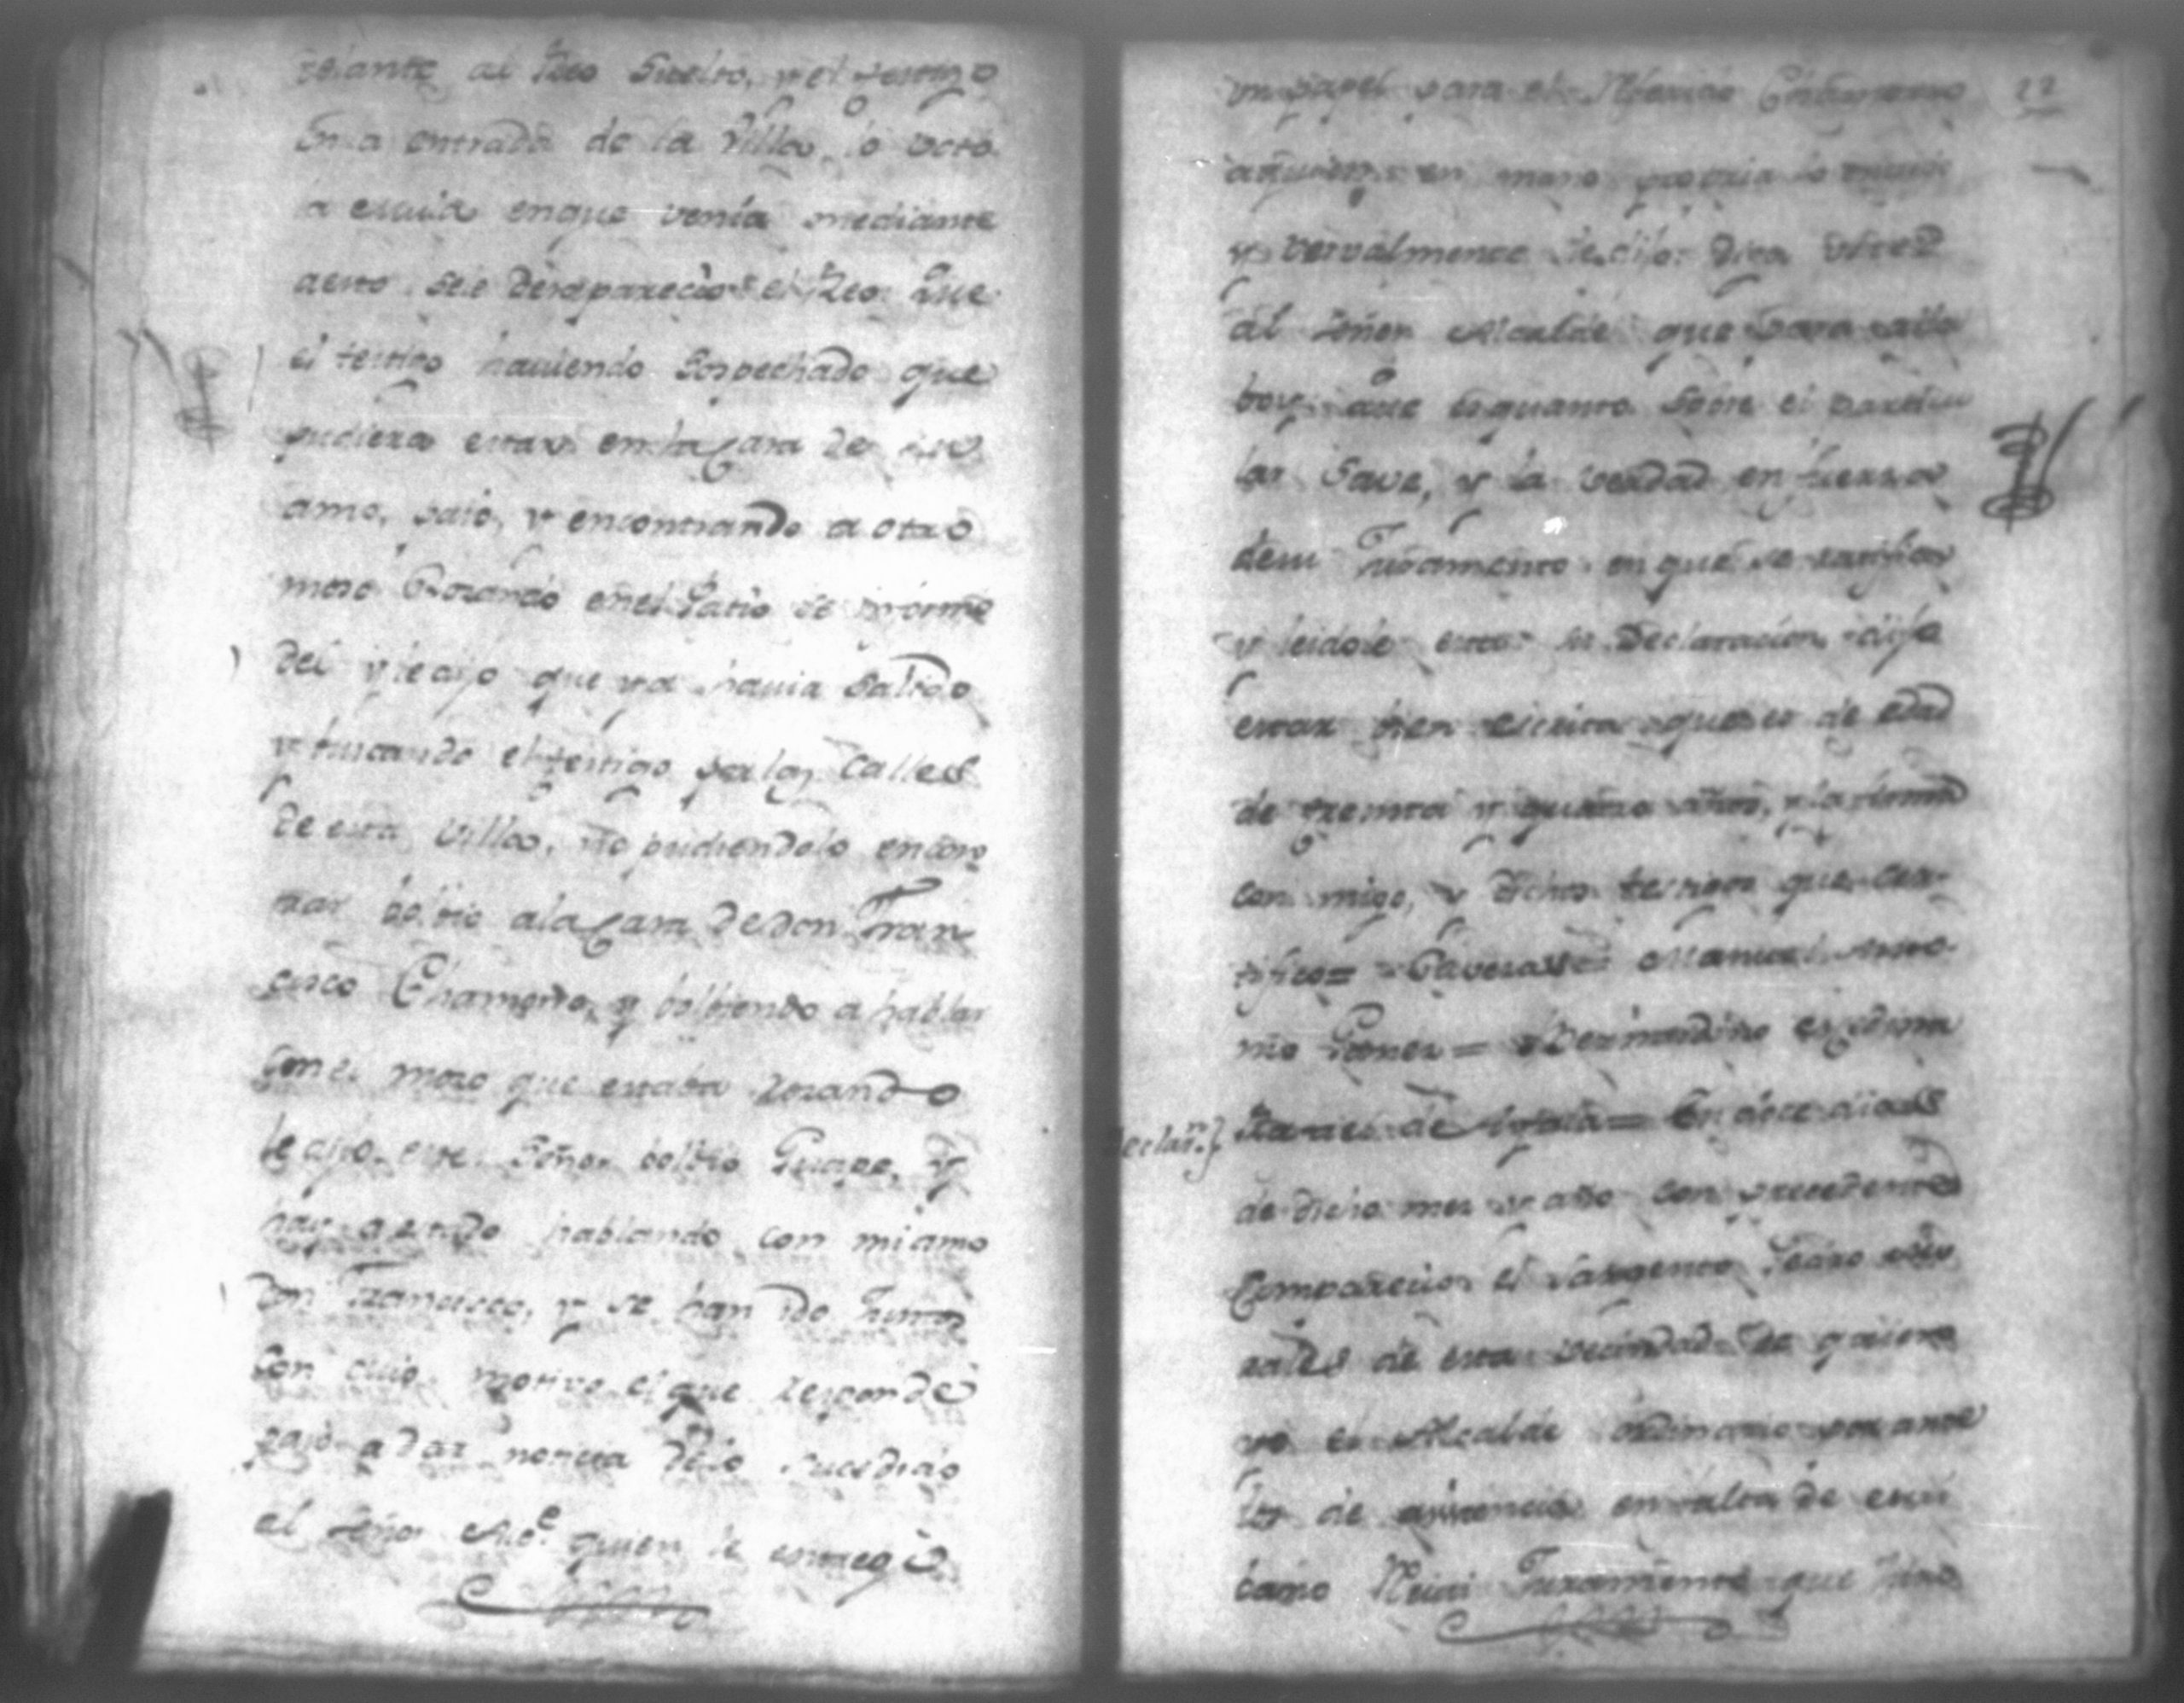 delante al Reo Suelto, y el testigo
en la entrada de la Villa, lo voto
la en que venia mediante
a esto se le desaparecio el Reo: Que
el testigo haviendo Sospechado que
pudiera estar en la Casa de su
amo, paso, y encontrando a otro
moso llorando en el Patio se informo
del y le dijo que ya havia Salido
y buscando el testigo por las Calles
de esta Villa, no pudiendolo encon
trar bolbio a la Casa de Don Fran
cisco Chamorro, y bolbiendo a hablar
con el moso que estaba llorando
le dijo, este Señor bolbio y
hay a estado hablando con mi amo
Don Francisco, y se han ido Juntos
Con cuio motivo el que responde
paso a dar noticia de lo sucedido
al Señor Alc.e quien le entregó
22
un papel para el Chamorro
a quien en mano propria lo
y vervalmente le dijo: Diga Usted
al Señor Alcalde que para alla
boy: Que es quanto Sobre el particu
lar Save, y la verdad en fuerza
de su Juramento en que se ratifica
y leidole esta su Declaracion, dijo
estar bien escrita que es de edad
de treinta y quatro años, y la firma
con migo, y dichos testigos que cer-
tifico= = Manuel Anto-
nio = Bernardino
de = En doce dias
Declan.}
de dicho mes y año con precedente
Comparecio el Sargento Pedro
de esta vecindad de quien
yo el Alcalde ordinario por ante
los de asistencia en falta de escri
bano Recivi Juramento que hizo